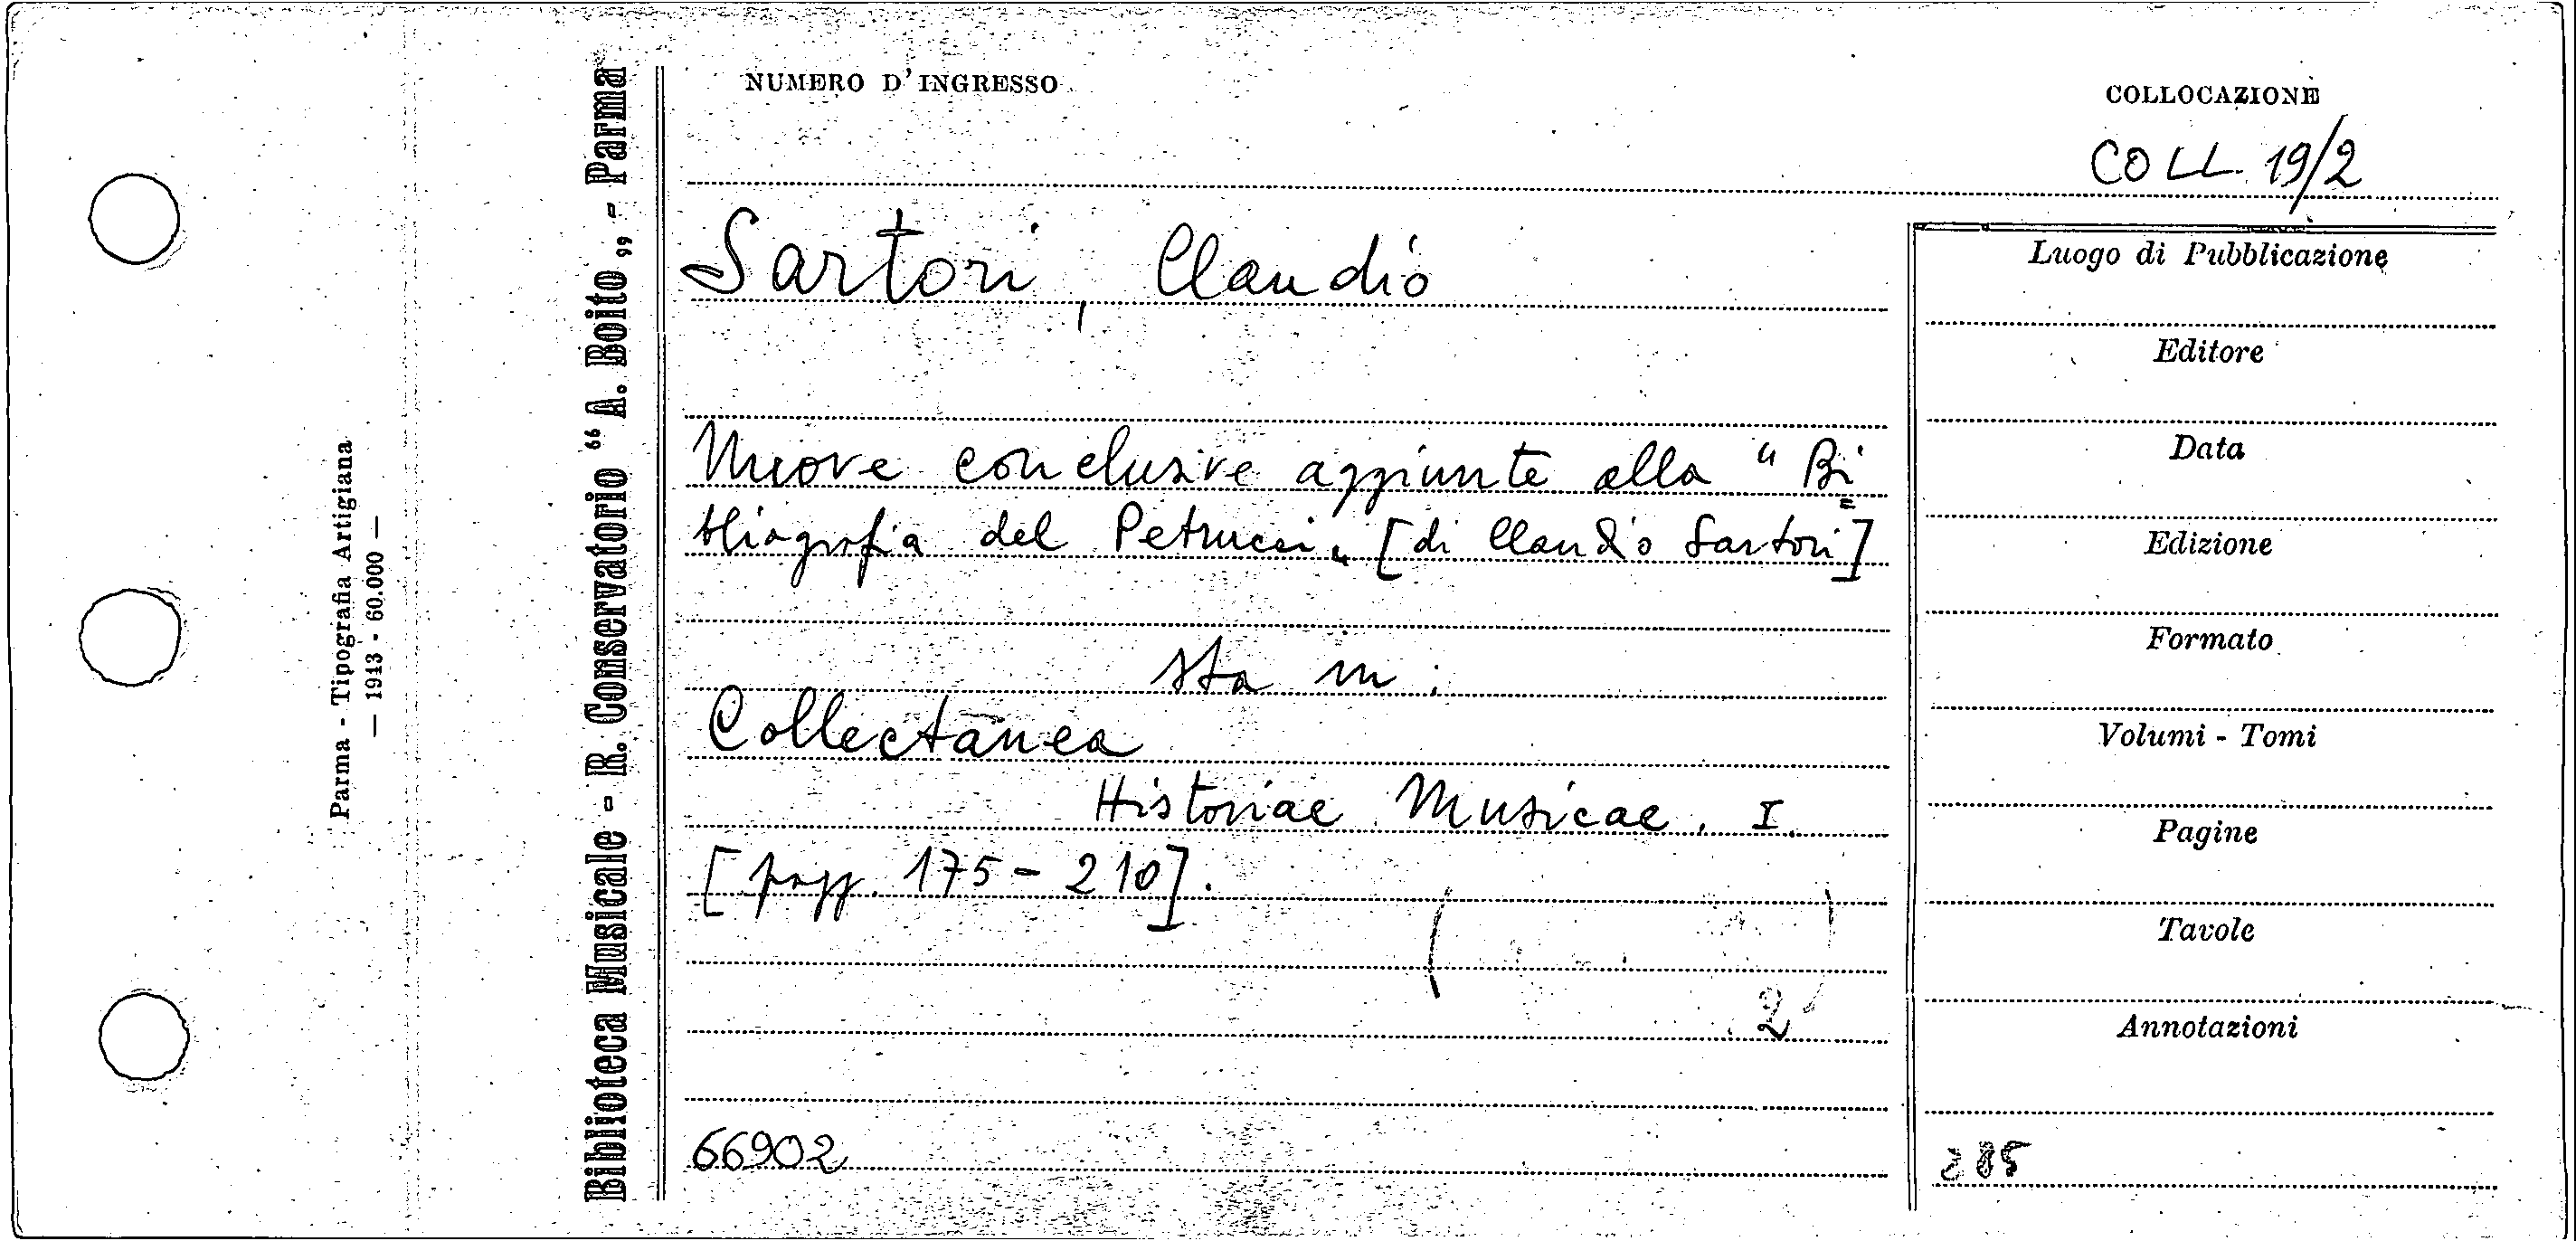 NUMERO D'INGRESSO
COLLOCAZIONE
COLL. 19/2
Sartori, Claudio
Nuove conclusive aggiunte alla " Bi=
bliografia del Petrucci„ [di Claudio Sartori]
sta in:
Collectanea
Historiae Musicae. I.
[pagg. 175 - 210].
2
66902
Luogo di Pubblicazione
Editore
Data
Edizione
Formato
Volumi - Tomi
Pagine
Tavole
Annotazioni
285
Biblioteca Musicale - R. Conservatorio “A. Boito„ - Parma
Parma - Tipografia Artigiana
— 1943 - 60.000 —